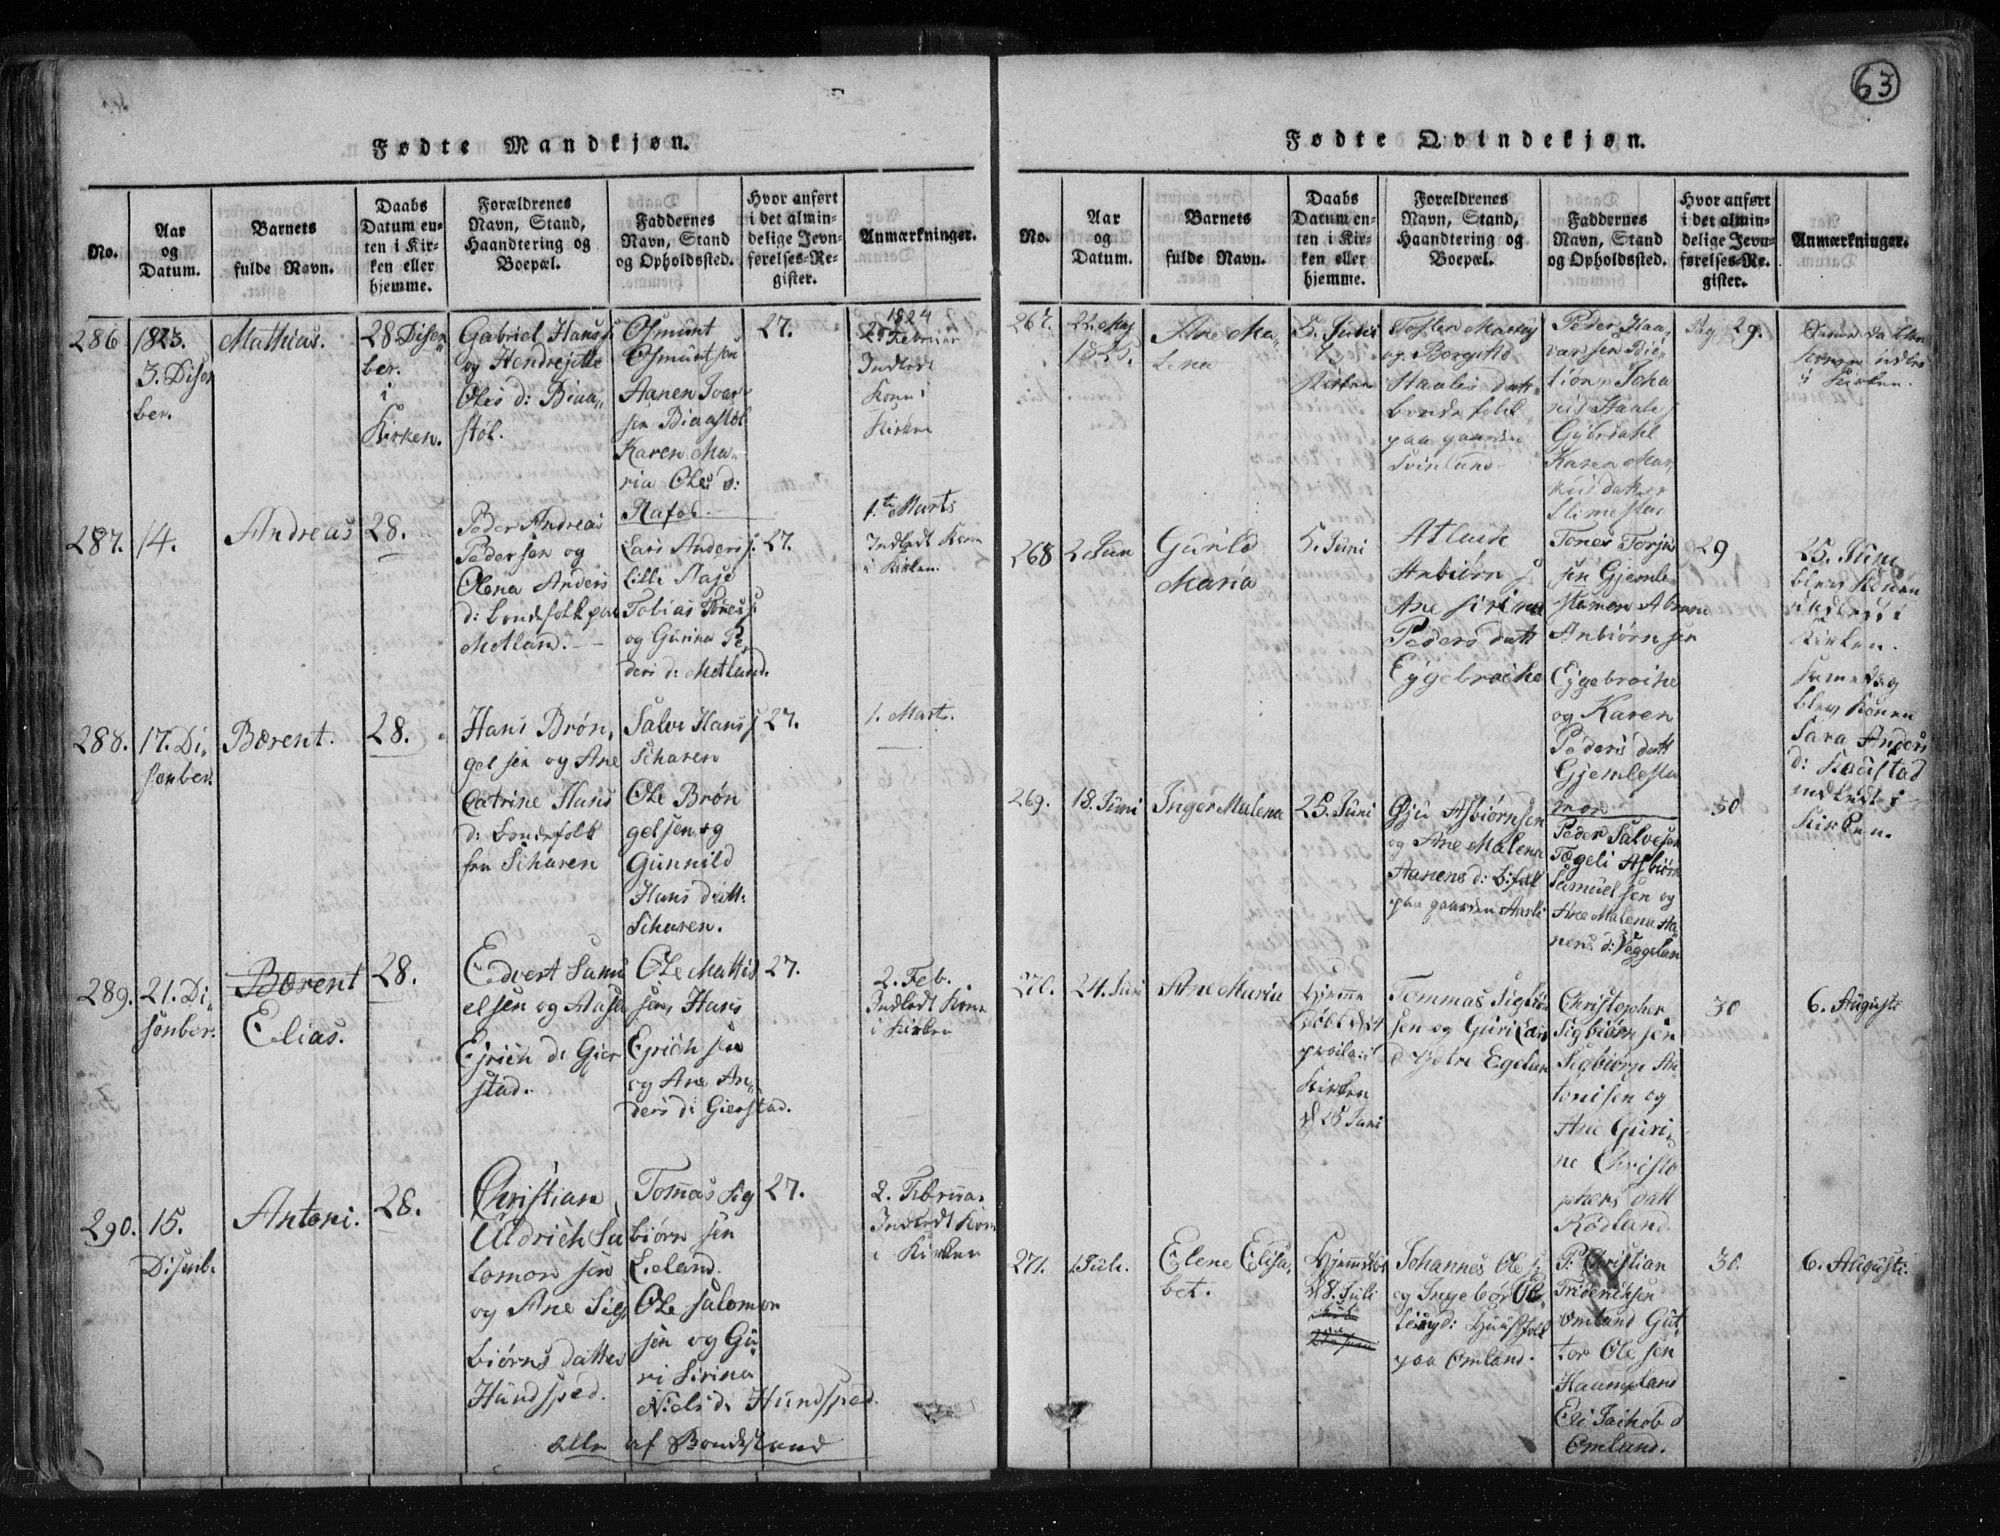 63
Fødte Mandkjøn.
No.
Aar
og
Datum.
Barnets
fulde Navn.
Daabs
Datum en-
ten i Kir-
ken eller
hjemme.
Forældrenes
Navn, Stand,
Haandtering og
Boepæl.
Faddernes
Navn, Stand
og Opholdssted.
Hvor anført
i det almin-
delige Jevn-
førelses-Re-
gister.
Anmærkninger.
286
1823.
3. Disen
ber.
Mathias.
28 Disen
ber.
i
Kirken.
Gabriel Hans s:
og Hendrejette
Oles d: Biaa„
støl.
Osmunt
Osmuntsen
Aanen Ivar
sen Biaastøl
Karen Ma„
ria Oles d:
Rafos.
27.
1824
Februar
Indledt
Kone i
Kirken
287.
14.
Andreas
28.
Peder Andreas
Pedersen og
Olena Anders
d: bondefolk paa
Metland.
Lars Anders s:
Lille Aase
Tobias Tønes s:
og Gurina Pe
ders d: Metland.
27.
1.te Marts
Indledt Kone
i Kirken.
288.
17. Di„
senber.
Bærent.
28.
Hans Brøn„
gelsen og Ane
Catrine Hans
d: bondefolk
fra Scharen
Salve Hans s
Scharen
Ole Brøn
gelsen og
Gunnild
Hans datt:
Scharen.
27.
1. Mart.
289.
21. Di„
senber.
Bærent
Elias.
28.
Edvert Samu
elsen og Aase
Ejrich d: Gier
stad.
Ole Mattis
sen, Hans
Ejrich sen
og Ane An„
ders d: Gierstad.
27.
2. Feb.
Indledt Kone
i Kirken
290.
15.
Disenb.
Antoni.
28.
Christian
Uldrich Sa
lomon sen
og Ane Sig
biørns datter
Hundsped.
Tomas Sig
biørn sen
Leeland.
Ole Salomon
sen og Gu„
ri Sirina
Niels d: Hundsped.
27.
2. Februa.
Indledt Kone
i Kirken
alle af Bondestand
Fødte Qvindekjøn.
No.
Aar
og
Datum.
Barnets
fulde Navn.
Daabs
Datum en-
ten i Kir-
ken eller
hjemme.
Forældrenes
Navn, Stand,
Haandtering og
Boepæl.
Faddernes
Navn, Stand
og Opholdssted.
Hvor anført
i det almin-
delige Jevn-
førelses-Re-
gister.
Anmærkninger.
267.
22. Maj
1825.
Ane Ma„
lena
5. Juni
i
Kirken
og Borgild
Staales datt
bonde folk
paa gaarden
Svinlund
Peder Haa„
varsen
Joha
nis Staales
Karen Mar
29.
Kirken.
268
2 Jun
Gunld
Maria
5. Juni
Atlack
Anbiørn s
Ane Sirina
Peders datt
Eygebroche
Tones Torju
sen Gjemle
stamon
Anbiørnsen
Eygebroche
og Karen
Peders datt
Gjemlesta
mon
29
25. Juni
blev Konen
indledt i
Kirken.
samedag
blev Konen
Sara Anders
d:
indledt i
Kirken.
269.
18. Juni
Inger Malena
25. Juni
Gju Asbiørnsen
og Ane Malena
Aanens d:
paa gaarden
Peder Salvesen
Tægeli Asbiørn
Samuelsen og
Ane Malena Aa
nens d: Veggelan
30
270.
24. Juni
Ane Maria
Hjeme
døbt d 24
i
Kirken
d 26 Juni
Tommas Sigbiørn
sen og Guri
Egelan
Christopher
Sigbiørnsen
Sigbiørn An
tonisen og
Ane Guri„
ne Christo
phers datt
Rødland.
30
6. Augusti
271.
1 Juli.
Elene Elisa„
bet.
Hjemmedøbt
d 8. Juli
Johannes Ole s
og Ingebør Ole
d: Huusfolk
paa Omland.
P. Christian
Friderichsen
Omland Gut
tor Olesen
Haumpland
Eli Jachob d
Omland.
30.
6. Augusti.